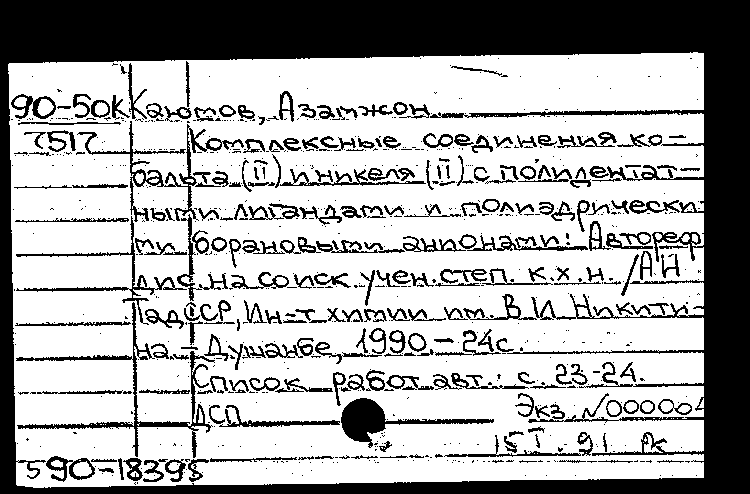 90-50К Каюмов, Азамжон
7517 Комплексные соединения ко-
бальта (II) и никеля (II) с полидентат-
ными лигандами и полиэдрически-
ми борановыми анионами: Автореф
дис. на соиск учен. степ. к.х.н. /АН
ТаджССР, Ин-т химии им. В И Никити-
на. - Душанбе, 1990. - 24с.
Список работ авт.: с. 23-24.
ДСП Экз. №000004
15.I.91 Рк
590-18395